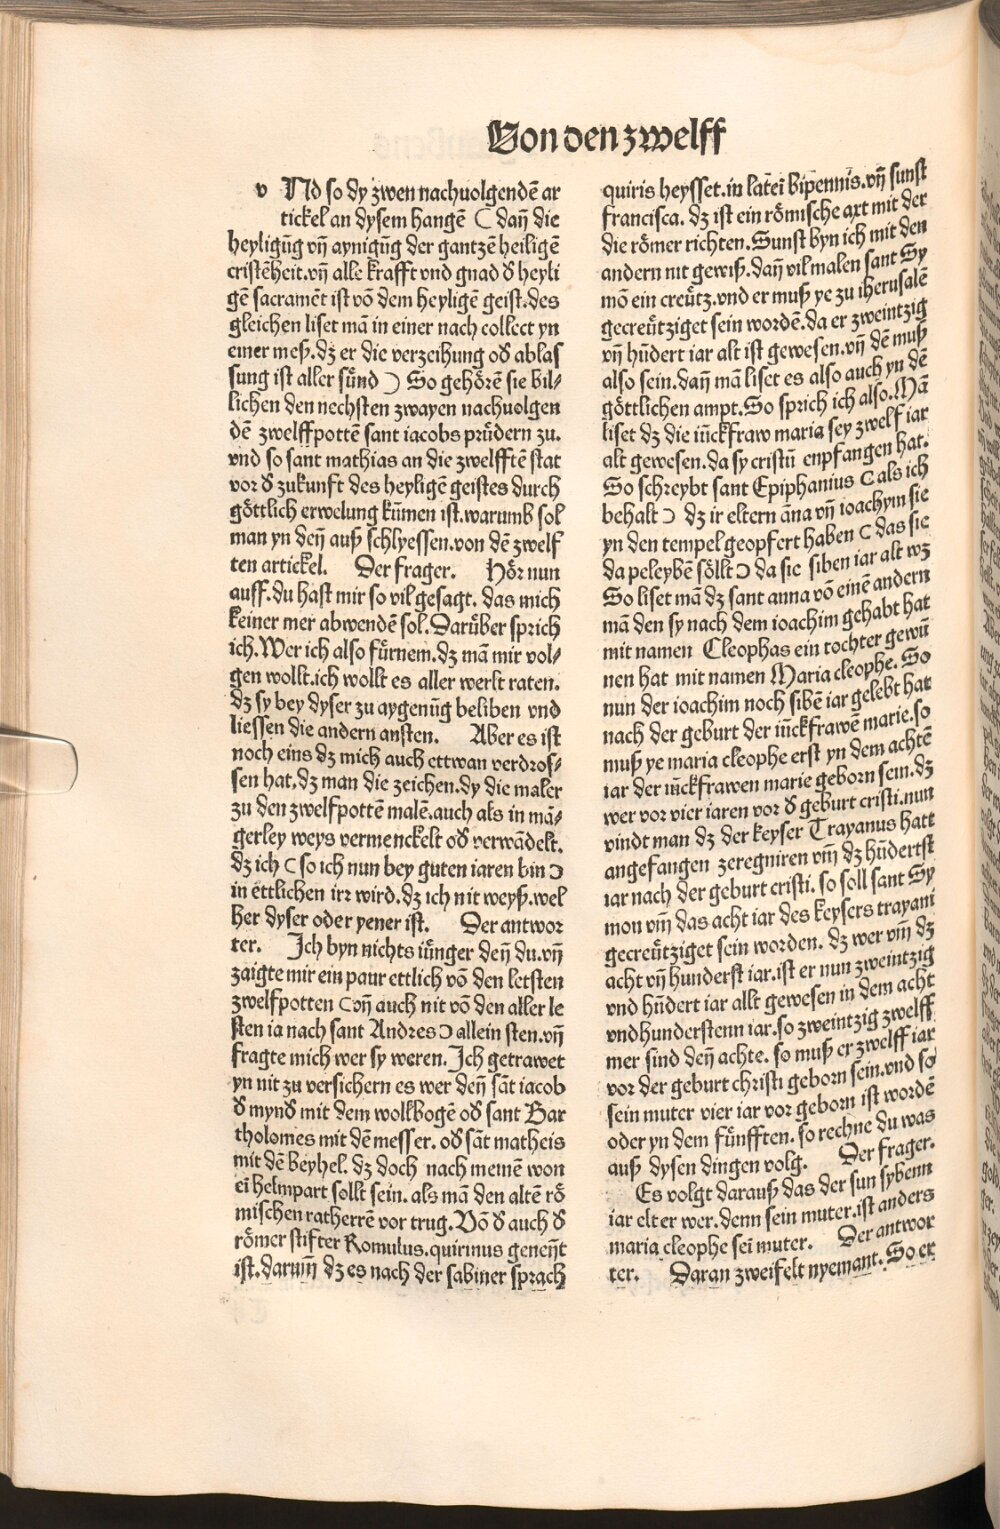 Von den zwelff
v Nd so dy zwen nachuolgendē ar
tickel an dysem hangē ( dañ die
heyligūg vñ aynigūg der gantzē heiligē
cristēheit.vñ alle krafft vnd gnad d̕ heyli
gē sacramēt ist vō dem heyligē geist.des
gleichen liset mā in einer nach collect yn
einer meß.dz er die verzeihung od̕ ablas
sung ist aller sünd ) So gehörē sie bil⸗
lichen den nechsten zwayen nachuolgen
dē zwelffpottē sant iacobs prüdern zu.
vnd so sant mathias an die zwelfftē stat
vor d̕ zukunft des heyligē geistes durch
göttlich erwelung kūmen ist.warumb sol
man yn deñ auß schlyessen.von dē zwelf
ten artickel. Der frager. Hör nun
auff.du hast mir so vil gesagt. das mich
keiner mer abwendē sol.Darüber sprich
ich.Wer ich also fürnem.dz mā mir vol⸗
gen wollt.ich wollt es aller werlt raten.
dz sy bey dyser zu aygenūg beliben vnd
liessen die andern ansten. Aber es ist
noch eins dz mich auch ettwan verdros⸗
sen hat.dz man die zeichen.dy die maler
zu den zwelfpottē malē.auch als in mā⸗
gerley weys vermenckelt od̕ verwādelt.
dz ich ( so ich nun bey guten iaren bin )
in ettlichen irz wird.dz ich nit weyß.wel
her dyser oder yener ist. Der antwor
ter. Ich byn nichts iünger deñ du.vñ
zaigte mir ein paur ettlich vō den letsten
zwelfpotten (vñ auch nit vō den aller le
sten ia nach sant Andres ) allein sten.vñ
fragte mich wer sy weren.Ich getrawet
yn nit zu versichern es wer deñ sāt iacob
d̕ mynd̕ mit dem wolkbogē od̕ sant Bar
tholomes mit dē messer. od̕ sāt matheis
mit dē beyhel. dz doch nach meinē won
eī helmpart sollt sein. als mā den altē rö
mischen ratherrē vor trug.Vō d̕ auch d̕
römer stifter Romulus.quirinus geneñt
ist.darum̄ dz es nach der sabiner sprach
quiris heysset.in lateī bipennis.vñ sunst
francisca. dz ist ein römische axt mit der
die römer richten.Sunst byn ich mit den
andern nit gewiß.dañ vil malen sant Sy
mō ein creütz.vnd er muß ye zu iherusalē
gecreütziget sein wordē.da er zweintzig
vñ hūdert iar alt ist gewesen.vñ dē muß
also sein.dañ mā liset es also auch yn dē
göttlichen ampt.So sprich ich also.Mā
liset dz die iūckfraw maria sey zwelf iar
alt gewesen.da sy cristū enpfangen hat.
So schreybt sant Epiphanius ( als ich
behalt ) dz ir eltern āna vñ ioachym sie
yn den tempel geopfert haben ( das sie
da peleybē söllt ) da sie siben iar alt wz
So liset mā dz sant anna vō einē andern
mā den sy nach dem ioachim gehabt hat
mit namen Cleophas ein tochter gewū
nen hat mit namen Maria cleophe. So
nun der ioachim noch sibē iar gelebt hat
nach der geburt der iūckfrawē marie.so
muß ye maria cleophe erst yn dem achtē
iar der iūckfrawen marie geborn sein.dz
wer vor vier iaren vor d̕ geburt cristi.nun
vindt man dz der keyser Trayanus hatt
angefangen zeregniren vm̄ dz hūdertst
iar nach der geburt cristi. so soll sant Sy
mon vm̄ das acht iar des keysers trayani
gecreütziget sein worden. dz wer vm̄ dz
acht vñ hunderst iar.ist er nun zweintzig
vnd hūdert iar allt gewesen in dem acht
vndhunderstenn iar.so zweintzig zwelff
mer sind deñ achte. so muß er zwelff iar
vor der geburt christi geborn sein.vnd so
sein muter vier iar vor geborn ist wordē
oder yn dem fünfften. so rechne du was
auß dysen dingen volg. Der frager.
Es volgt darauß das der sun sybenn
iar elter wer.denn sein muter.ist anders
maria cleophe seī muter. Der antwor
ter. Daran zweifelt nyemant. So er